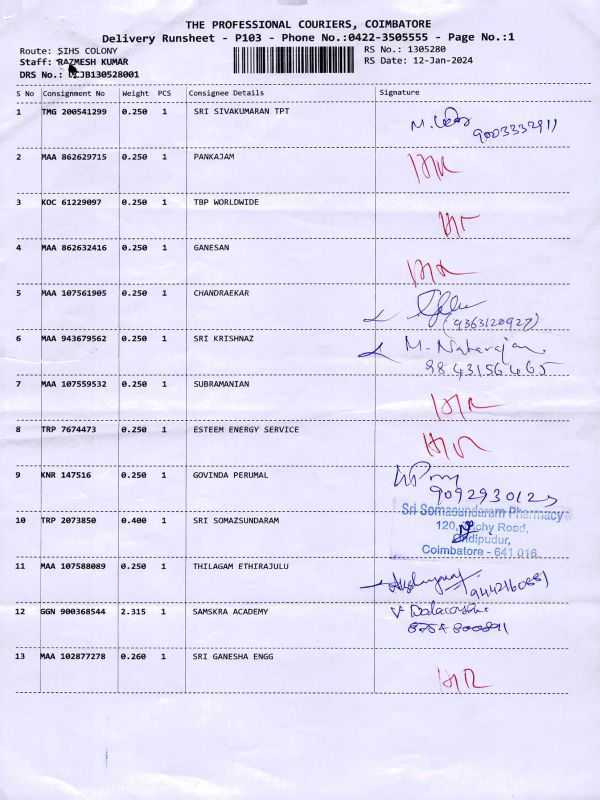 THE PROFESSIONAL COURIERS, COIMBATORE
Delivery Runsheet - P103 - Phone No.:0422-3505555 - Page No.:1
Route: SIHS COLONY RS No.: 1305280
Staff: RAZMESH KUMAR RS Date: 12-Jan-2024
DRS No.: JB130528001
S No Consignment No Weight PCS Consignee Details Signature
1 TMG 200541299 0.250 1 SRI SIVAKUMARAN TPT
9003332911
2 MAA 862629715 0.250 1 PANKAJAM
3 KOC 61229097 0.250 1 TBP WORLDWIDE
4 MAA 862632416 0.250 1 GANESAN
5 MAA 107561905 0.250 1 CHANDRAEKAR
(9363120927)
6 MAA 943679562 0.250 1 SRI KRISHNAZ M. Natarajan
98 43156465
7 MAA 107559532 0.250 1 SUBRAMANIAN
8 TRP 7674473 0.250 1 ESTEEM ENERGY SERVICE
9 KNR 147516 0.250 1 GOVINDA PERUMAL
9092930123
Sri Somasundaram Pharmacy
10 TRP 2073850 0.400 1 SRI SOMAZSUNDARAM 120, Road,
Coimbatore - 641 016.
11 MAA 107588089 0.250 1 THILAGAM ETHIRAJULU
9442160881
12 GGN 900368544 2.315 1 SAMSKRA ACADEMY
13 MAA 102877278 0.260 1 SRI GANESHA ENGG